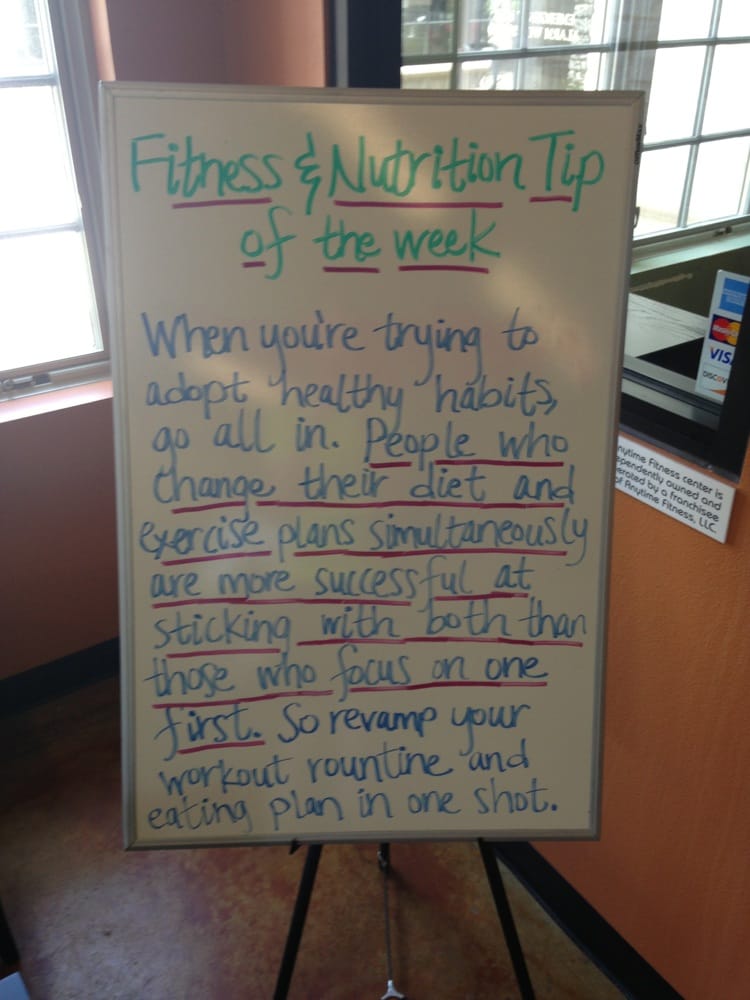 Fitness & Nutrition Tip
of the week
When you're trying to
adopt healthy habits,
go all in. People who
change their diet and
exercise plans simultaneously
are more successful at
sticking with both than
those who focus on one
first. So revamp your
workout rountine and
eating plan in one shot.
MasterCard
VISA
DISCOVER
nytime Fitness center is
ependently owned and
erated by a franchisee
of Anytime Fitness, LLC.